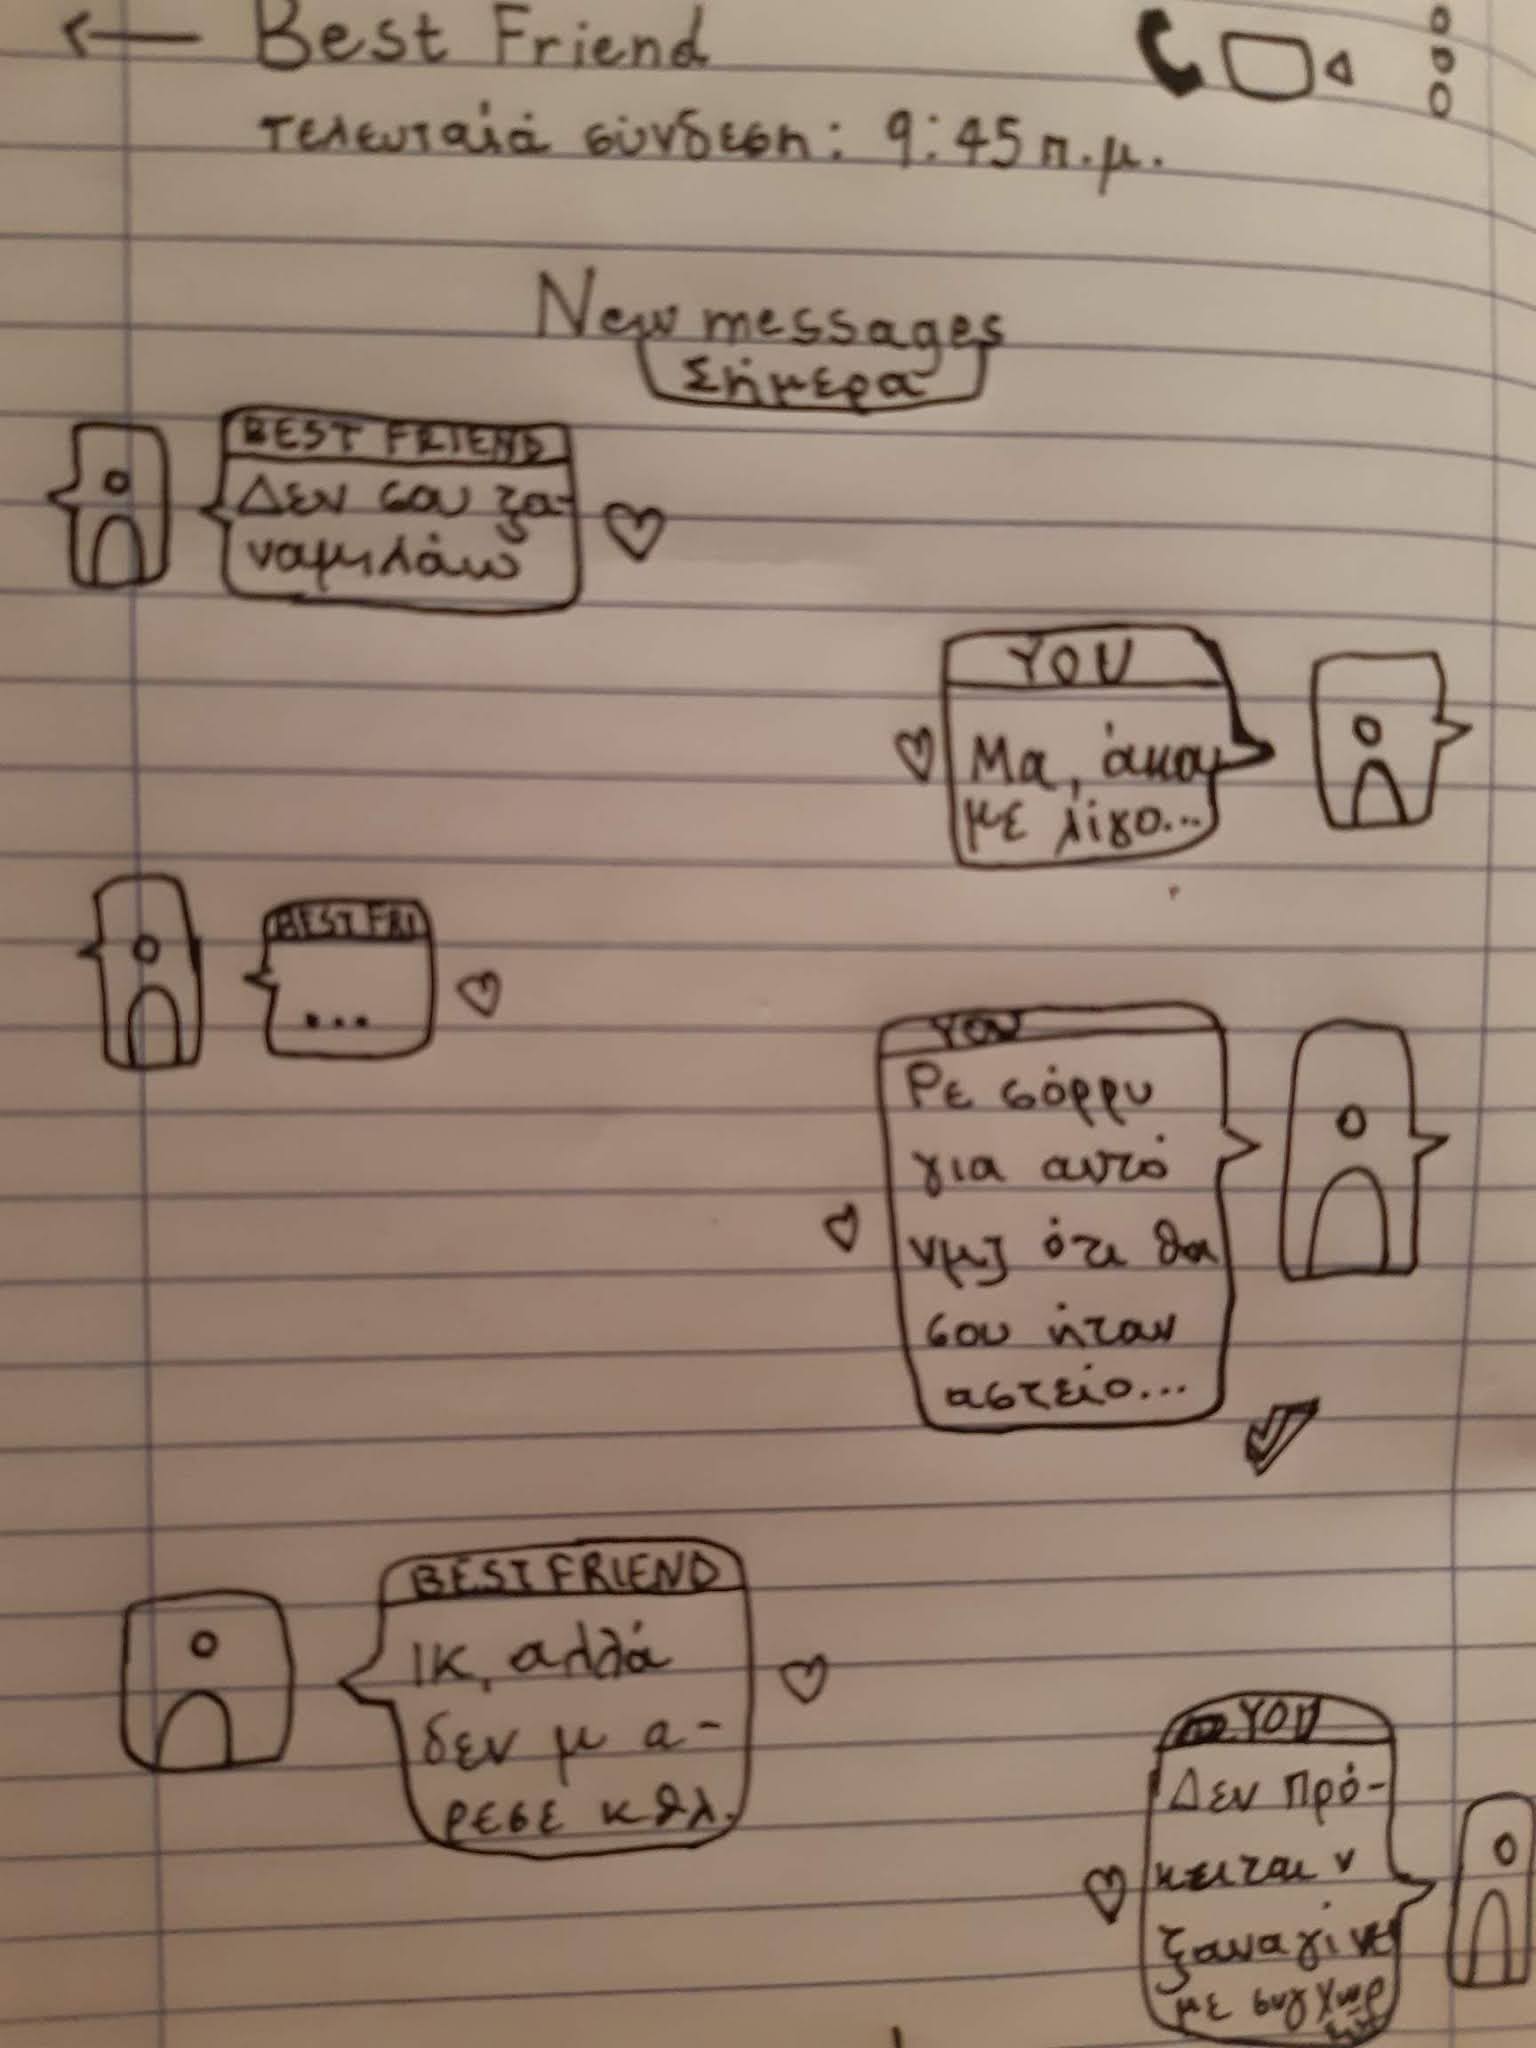 Best Friend
τελευταιά σύνδεση: 9:45 π.μ.
New messages
Σήμερα
BEST FRIEND
Δεν σου ξα-
ναμιλάω
YOU
Μα, άκου
με λίγο...
BEST FRI
...
YOU
Ρε σόρρυ
για αυτό
νμζ ότι θα
σου ήταν
αστείο...
BEST FRIEND
ΙΚ, αλλά
δεν μ α-
ρεσε κθλ.
YOU
Δεν πρό-
κειται ν
ξαναγίνει
με συγχωρ